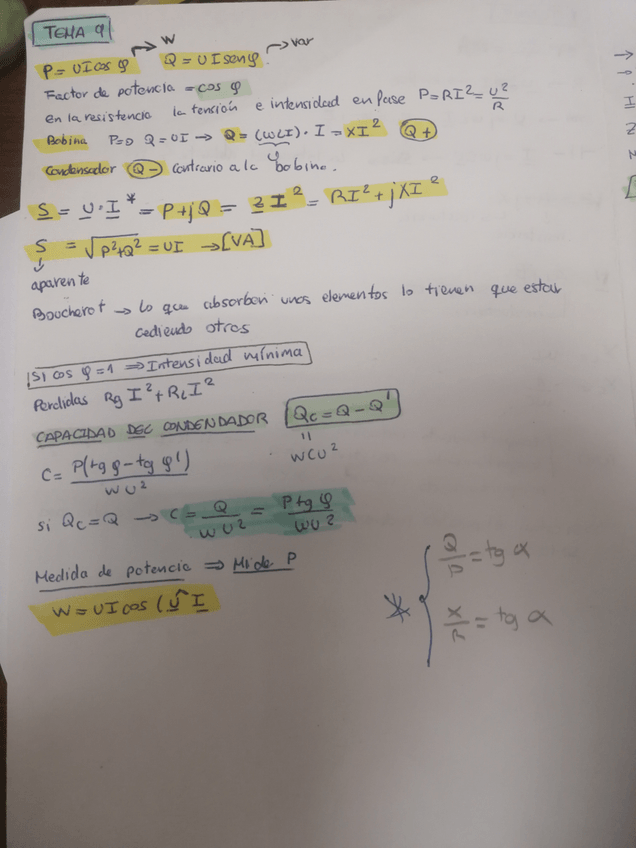 TEMA 9
P = UI cos φ → W Q = UI sen φ. → var
Factor de potencia = cos φ
en la resistencia la tensión e intensidad en fase P = RI² = U²/R
Bobina P=0 Q = UI → Q = (WLI) · I = XI² Q+
Condensador Q- contrario a la bobina.
S = U · I* = P + jQ = Z I² = RI² + jXI²
S = √P²+Q² = UI → [VA]
aparente
Boucherot → lo que absorben unos elementos lo tienen que estar
cediendo otros
Si cos φ = 1 ⇒ Intensidad mínima
Perdidas Rg I² + RL I²
CAPACIDAD DEL CONDENDADOR Qc = Q - Q'
WCU²
C = P(tg φ - tg φ')/WU²
si Qc = Q → C = Q/WU² = P tg φ/WU²
Medida de potencia ⇒ Mide P
W = UI cos (U^I
* { Q/P = tg α
X/R = tg α